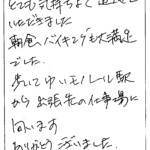 とても気持ちよく過ごさせて
いただきました
朝食バイキングも大満足
でした.
歩いてゆいモノレール駅
から出張先の仕事場に
向います
ありがとうございました.